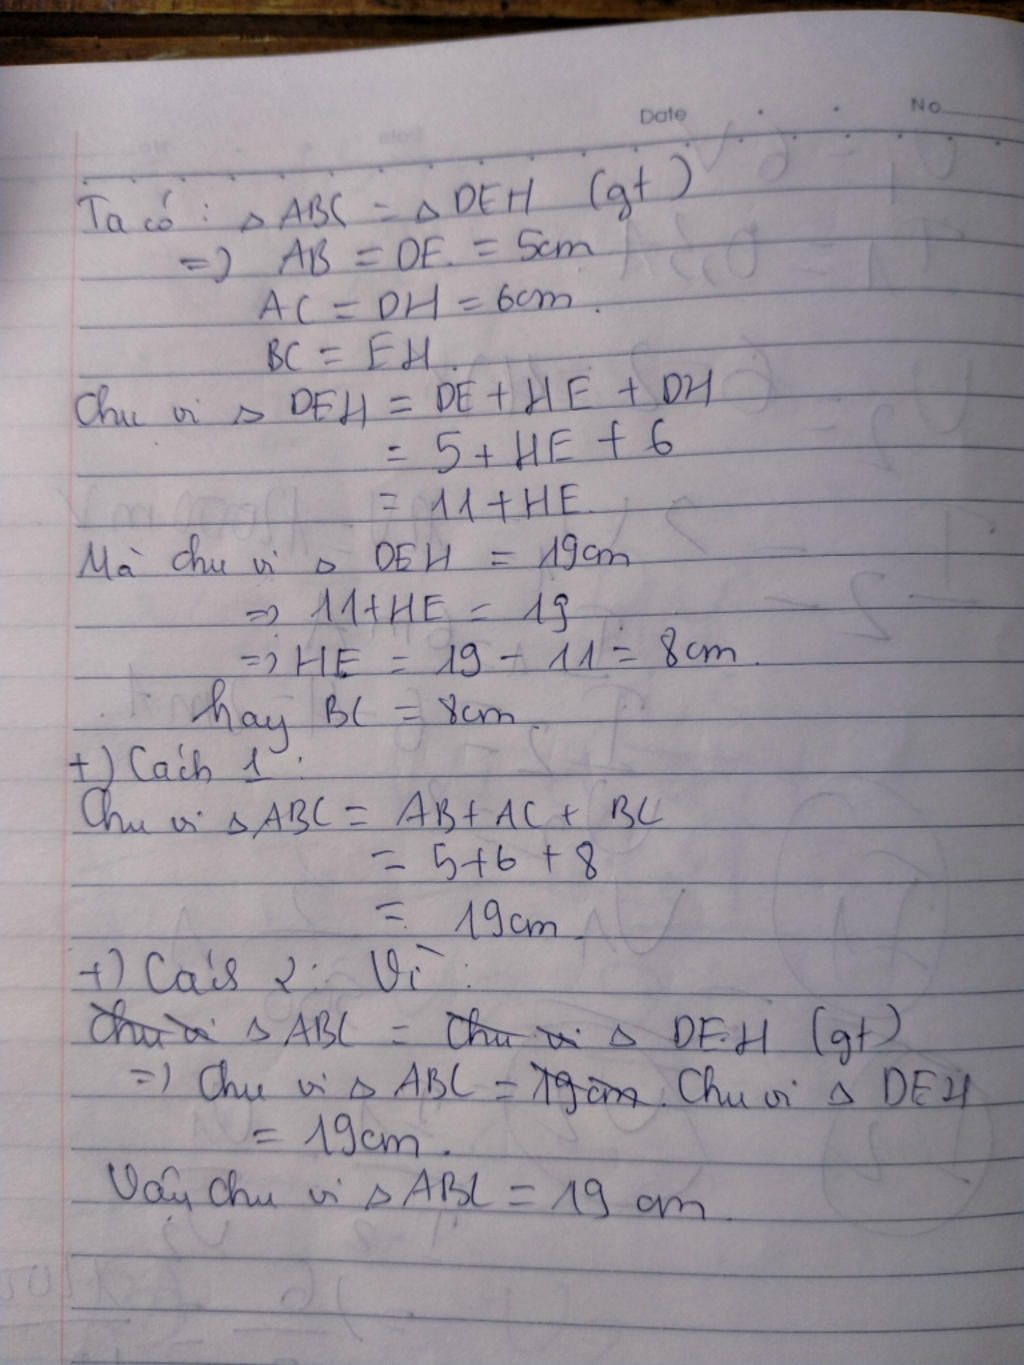 Date No
Ta có : △ ABC = △ DEH (gt)
=> AB = DE. = 5cm
AC = DH = 6cm.
BC = EH.
Chu vi △ DEH = DE + HE + DH
= 5 + HE + 6
= 11 + HE.
Mà chu vi △ DEH = 19cm
=> 11 + HE = 19
=> HE = 19 - 11 = 8cm.
hay BC = 8cm.
+) Cách 1 :
Chu vi △ ABC = AB + AC + BC
= 5 + 6 + 8
= 19cm.
+) Cách 2 : Vì :
Chu vi △ ABC = Chu vi △ DEH (gt)
=> Chu vi △ ABC = 19cm. Chu vi △ DEH
= 19cm.
Vậy chu vi △ ABC = 19 cm.